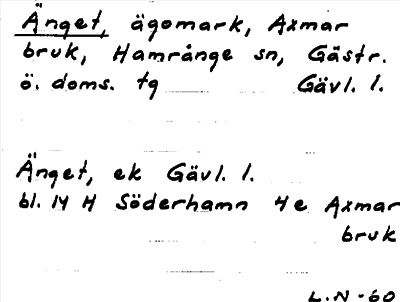 Änget, ägomark, Axmar
bruk, Hamrånge sn, Gästr.
ö. doms. tg Gävl. l.
Änget, ek Gävl. l.
bl. 14 H Söderhamn 4e Axmar
bruk
L.N-60